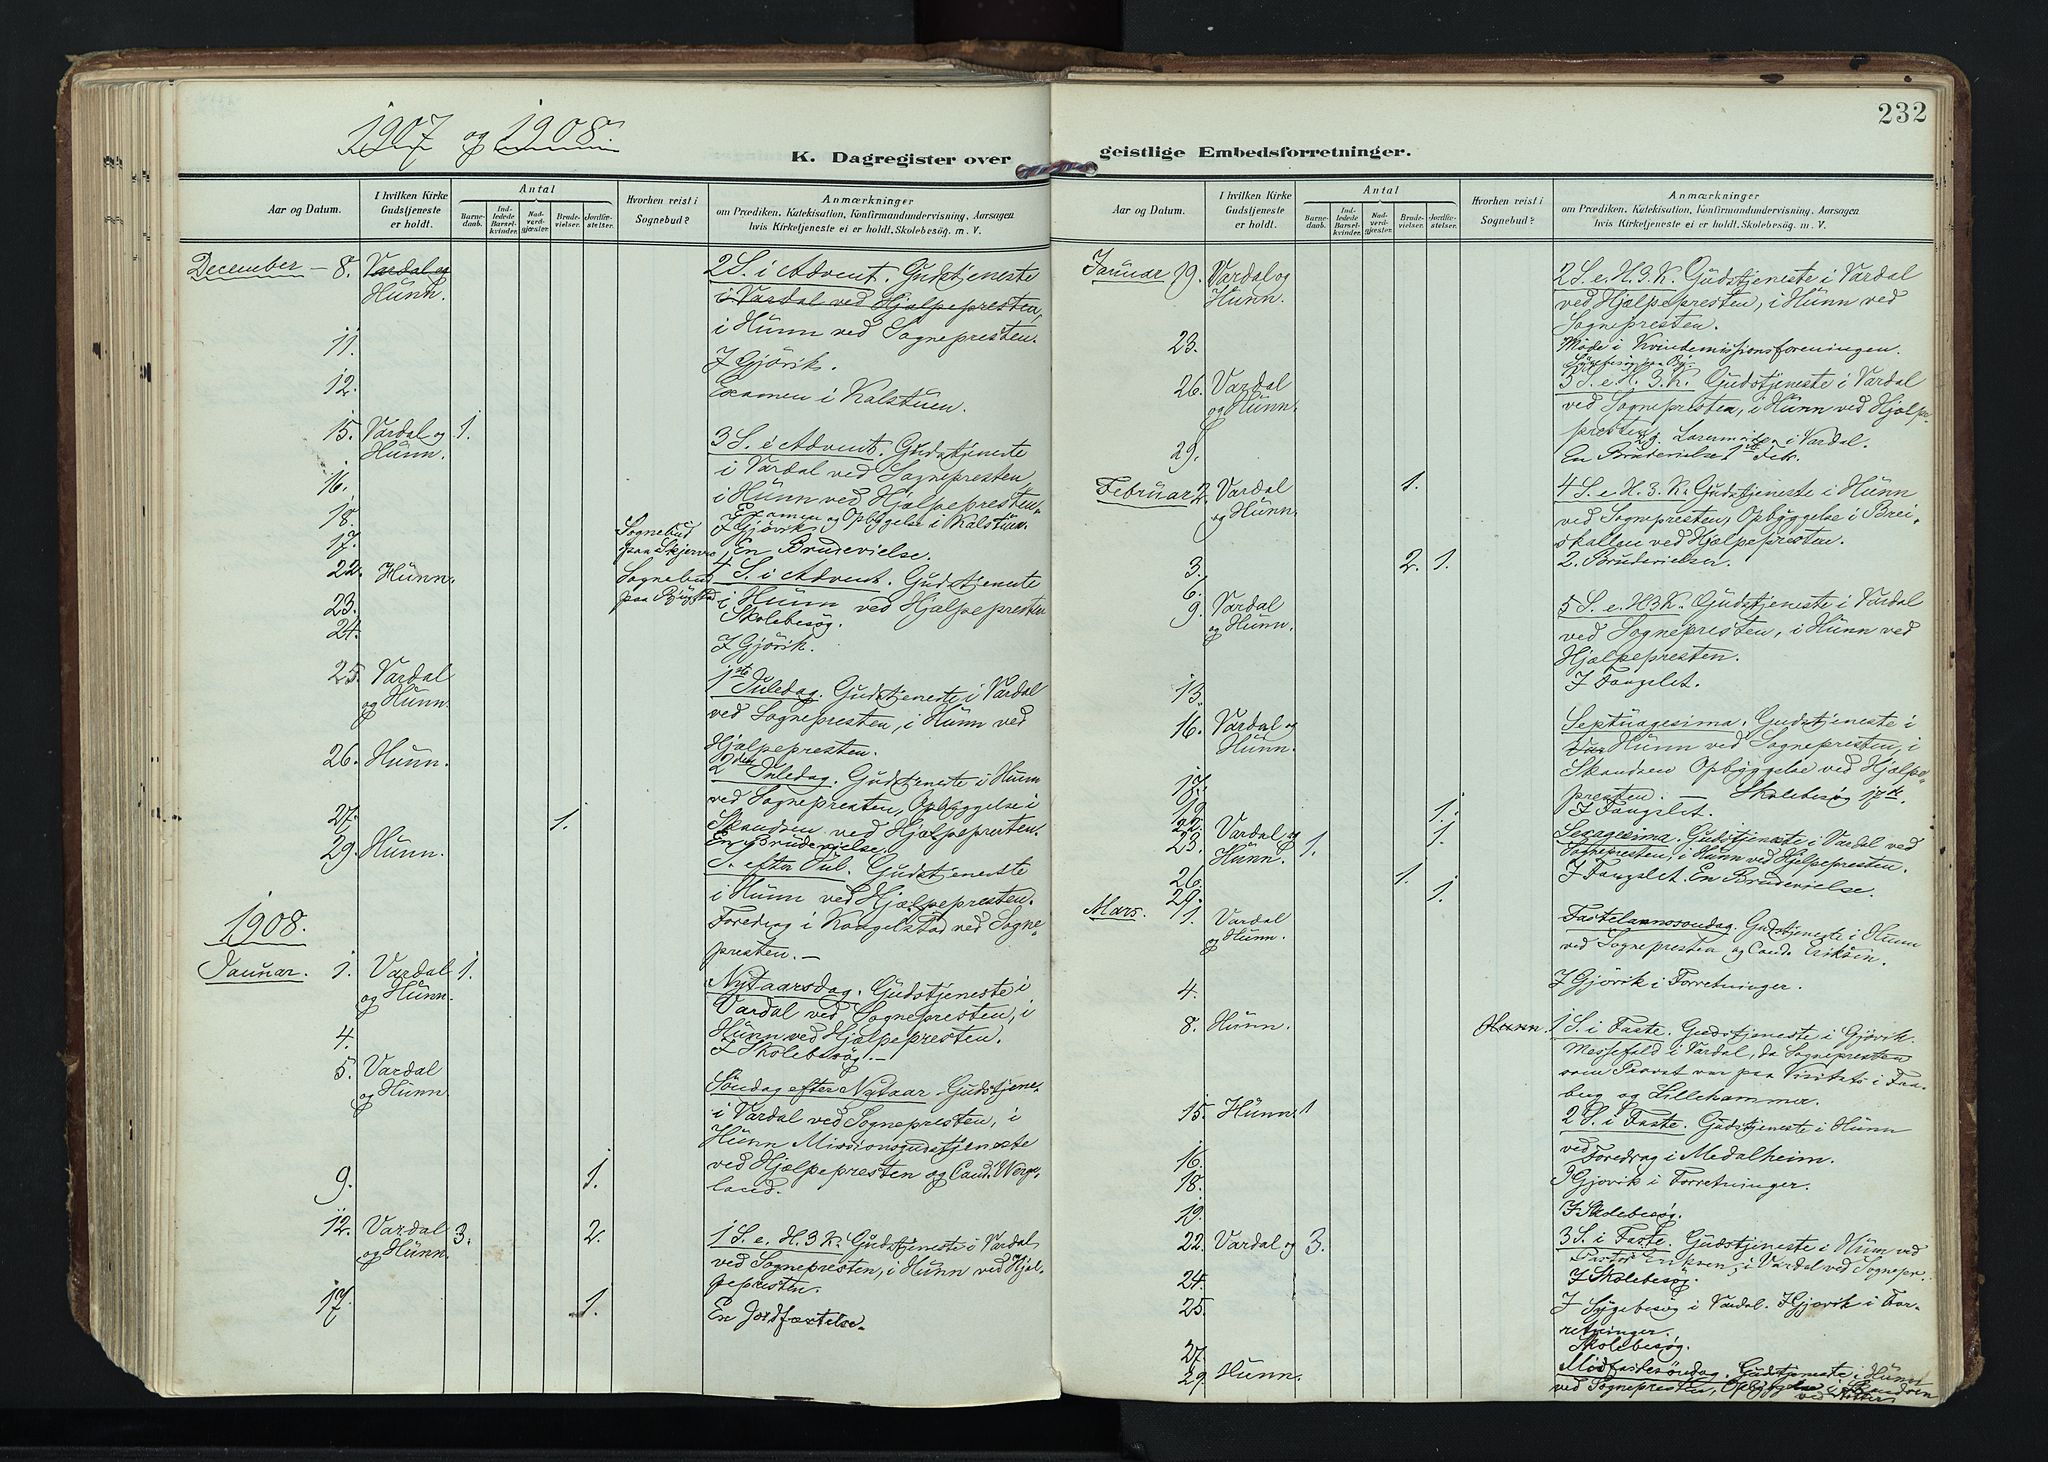 232
1907 og 1908.
K. Dagregister over geistlige Embedsforretninger.
Aar og Datum.
I hvilken Kirke Gudstjeneste er holdt.
Antal
Barnedaab.
Indledede Barselkvinder.
Nadverdgjæster.
Brudevielser.
Jordfæstelser.
Hvorhen reist i Sognebud?
Anmærkninger
om Prædiken, Katekisation, Konfirmandundervisning, Aarsagen
hvis Kirketjeneste ei er holdt. Skolebesög. m. V.
December – 8. Vardal og 2 S. i Advent. Gudstjeneste
Hunn. i Vardal ved Hjælpepresten,
i Hunn ved Sognepresten.
11. I Gjövik.
12. Examen i Kalstuen.
15. Vardal og 1. 3 S. i Advent. Gudstjeneste
Hunn. i Vardal ved Sognepresten,
16. i Hunn ved Hjælpepresten.
Examen og Opbyggelse i Kalstuen.
18. Sognebud I Gjövik.
17. paa En Brudevielse.
22. Hunn. Sognebud 4 S. i Advent. Gudstjeneste
23. paa i Hunn ved Hjælpepresten
24. Skolebesög.
I Gjövik.
25. Vardal 1ste Juledag. Gudstjeneste i Vardal
og Hunn. ved Sognepresten, i Hunn ved
Hjælpepresten.
26. Hunn. 2den Juledag. Gudstjeneste i Hunn
ved Sognepresten, Opbyggelse i
27. 1. Skandsen ved Hjælpepresten.
En Brudevielse.
29. Hunn. S. efter Jul. Gudstjeneste
i Hunn ved Hjælpepresten.
1908. Foredrag i ved Sogne-
presten. –
Januar. 1. Vardal 1. Nytaarsdag. Gudstjeneste i
og Hunn. Vardal ved Sognepresten, i
Hunn ved Hjælpepresten.
4. I Skolebesög. –
5. Vardal Söndag efter Nytaar. Gudstjene-
og Hunn. i Vardal ved Sognepresten, i
Hunn Missionsgudstjeneste
ved Hjælpepresten og Cand. Werge-
9. 1. land.
12. Vardal 3. 2. 1 S. e. H. 3 K. Gudstjeneste i Vardal
og Hunn. ved Sognepresten, i Hunn ved Hjæl-
pepresten.
17. 1. En Jordfæstelse.
Aar og Datum.
I hvilken Kirke Gudstjeneste er holdt.
Antal
Barnedaab.
Indledede Barselkvinder.
Nadverdgjæster.
Brudevielser.
Jordfæstelser.
Hvorhen reist i Sognebud?
Anmærkninger
om Prædiken, Katekisation, Konfirmandundervisning, Aarsagen
hvis Kirketjeneste ei er holdt. Skolebesög. m. V.
Januar 19. Vardal og 2 S. e. H. 3. K. Gudstjeneste i Vardal
Hunn. ved Hjælpepresten, i Hunn ved
Sognepresten.
23. Möde i Kvindemissionsforeningen.
Sygebesög paa
26. Vardal 3 S. e. H. 3. K. Gudstjeneste i Vardal
og Hunn. ved Sognepresten, i Hunn ved Hjælpe-
presten.
29. 29. i Vardal.
En Brudevielse 1ste Feb.
Februar 2. Vardal 1. 4 S. e. H. 3. K. Gudstjeneste i Hunn
og Hunn. ved Sognepresten, Opbyggelse i Brei-
skallen ved Hjælpepresten.
3. 2. 1. 2. Brudevielser.
6.
9. Vardal 5 S. e. H. 3 K. Gudstjeneste i Vardal
og Hunn. ved Sognepresten, i Hunn ved
Hjælpepresten.
13. I Fængslet.
16. Vardal og Septuagesima. Gudstjeneste i
Hunn. Var Hunn ved Sognepresten, i
Skandsen Opbyggelse ved Hjælpe-
17. presten. – Skolebesög 17de.
19. 1. I Fængslet.
22. 1.
23. Vardal og 1. Sexagesima. Gudstjeneste i Vardal ved
Hunn. Sognepresten, i Hunn ved Hjælpepresten.
26. 1. I Fængslet. En Brudevielse.
29. 1.
Mars. 1. Vardal Fastelavnssöndag. Gudstjeneste i Hunn
og Hunn. ved Sognepresten og Cand. Eriksen.
4. I Gjövik i Forretninger.
8. Hunn. Hunn. 1 S. i Faste. Gudstjeneste i Gjövik.
Messefald i Vardal, da Sognepresten
som Provst var paa Visitats i Faa-
berg og Lillehammer.
15. Hunn. 1 2 S. i Faste. Gudstjeneste i Hunn
ved
16. Foredrag i Medalheim.
18. I Gjövik i Forretninger.
19. I Skolebesög.
22. Vardal og 3. 3 S. i Faste. Gudstjeneste i Hunn ved
Pastor Eriksen, i Vardal ved Sognepr.
24. I Skolebesög.
25. I Sygebesög i Vardal. I Gjövik i For-
retninger.
27. Skolebesög.
29. Hunn. Midfastesöndag. Gudstjeneste i Hunn
ved Sognepresten, Opbyggelse i Skandsen
ved